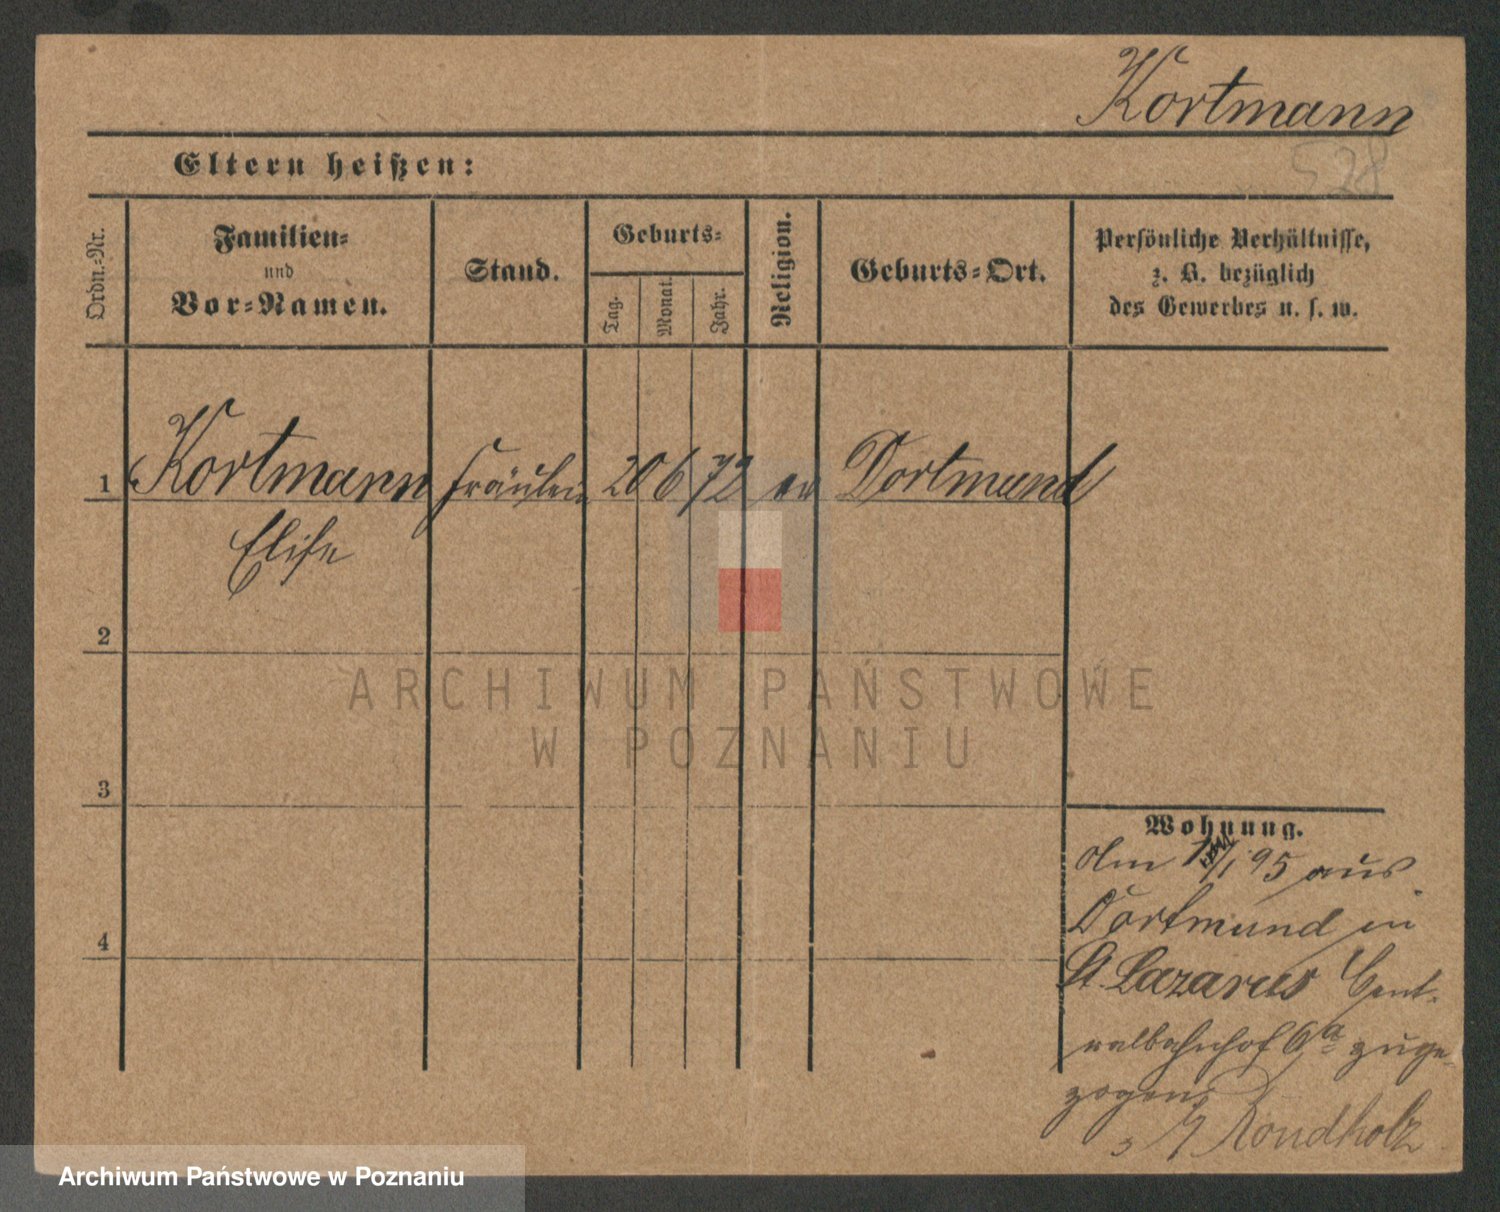 Kortmann
528
Eltern heißen:
Ordn.-Nr.
Familien-
und
Vor-Namen.
Stand.
Geburts-
Tag.
Monat.
Jahr.
Religion.
Geburts-Ort.
Persönliche Verhältnisse,
z. B. bezüglich
des Gewerbes u. s. w.
1 Kortmann Fräulein 20 6 72 ev Dortmund
Elise
2
3
4
Wohnung.
Am 95 aus
Dortmund in
St. Lazarus Cent-
ralbahnhof 6a zuge-
zogen
Rondholz
ARCHIWUM PAŃSTWOWE
W POZNANIU
Archiwum Państwowe w Poznaniu